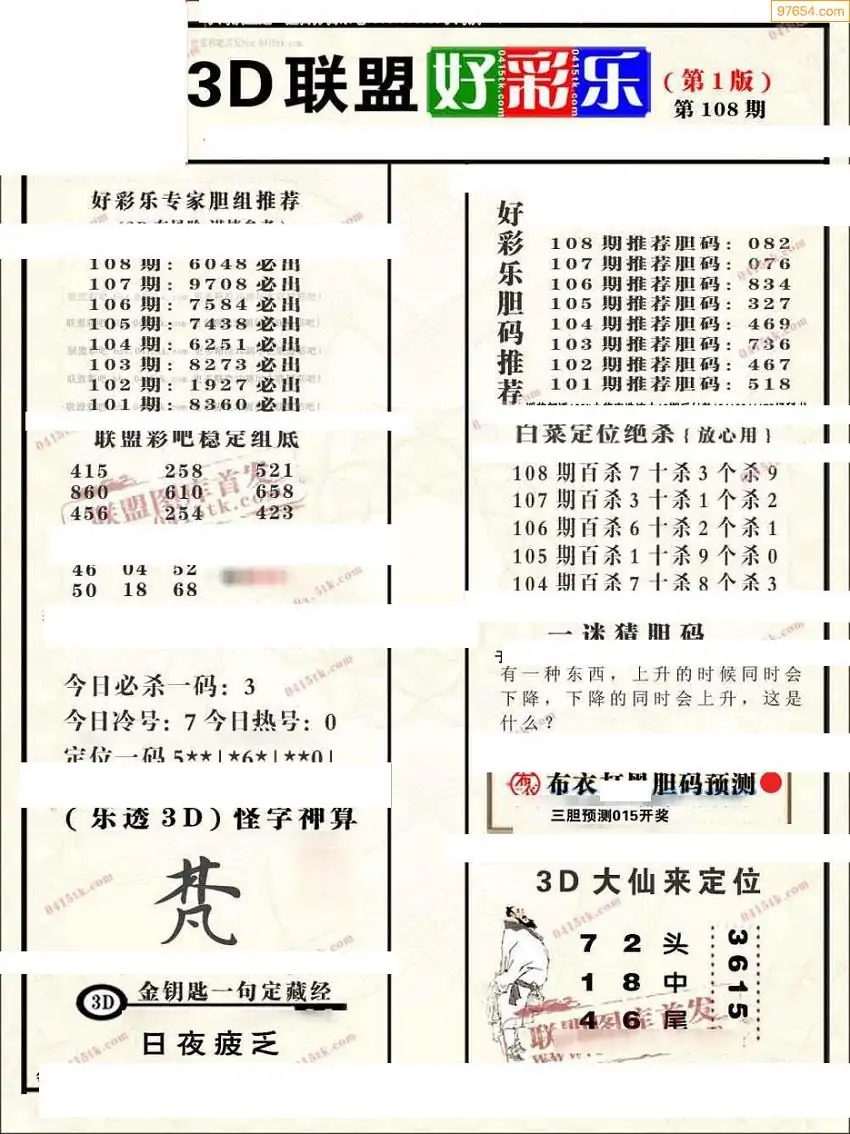 97654.com
3D联盟好彩乐
(第1版)
第108期
好彩乐专家胆组推荐
108期:6048必出
107期:9708必出
106期:7584必出
105期:7438必出
104期:6251必出
103期:8273必出
102期:1927必出
101期:8360必出
联盟彩吧稳定组底
415 258 521
860 610 658
456 254 423
46 04 52
50 18 68
今日必杀一码:3
今日冷号:7 今日热号:0
定位一码5**|*6*|**0|
(乐透3D)怪字神算
梵
3D 金钥匙一句定藏经
日夜疲乏
好彩乐胆码推荐
108期推荐胆码:082
107期推荐胆码:076
106期推荐胆码:834
105期推荐胆码:327
104期推荐胆码:469
103期推荐胆码:736
102期推荐胆码:467
101期推荐胆码:518
白菜定位绝杀{放心用}
108期百杀7十杀3个杀9
107期百杀3十杀1个杀2
106期百杀6十杀2个杀1
105期百杀1十杀9个杀0
104期百杀7十杀8个杀3
一迷猜胆码
有一种东西,上升的时候同时会
下降,下降的同时会上升,这是
什么?
布衣
胆码预测
三胆预测015开奖
3D大仙来定位
7 2 头
1 8 中
4 6 尾
3615
联盟图库首发
0415tk.com